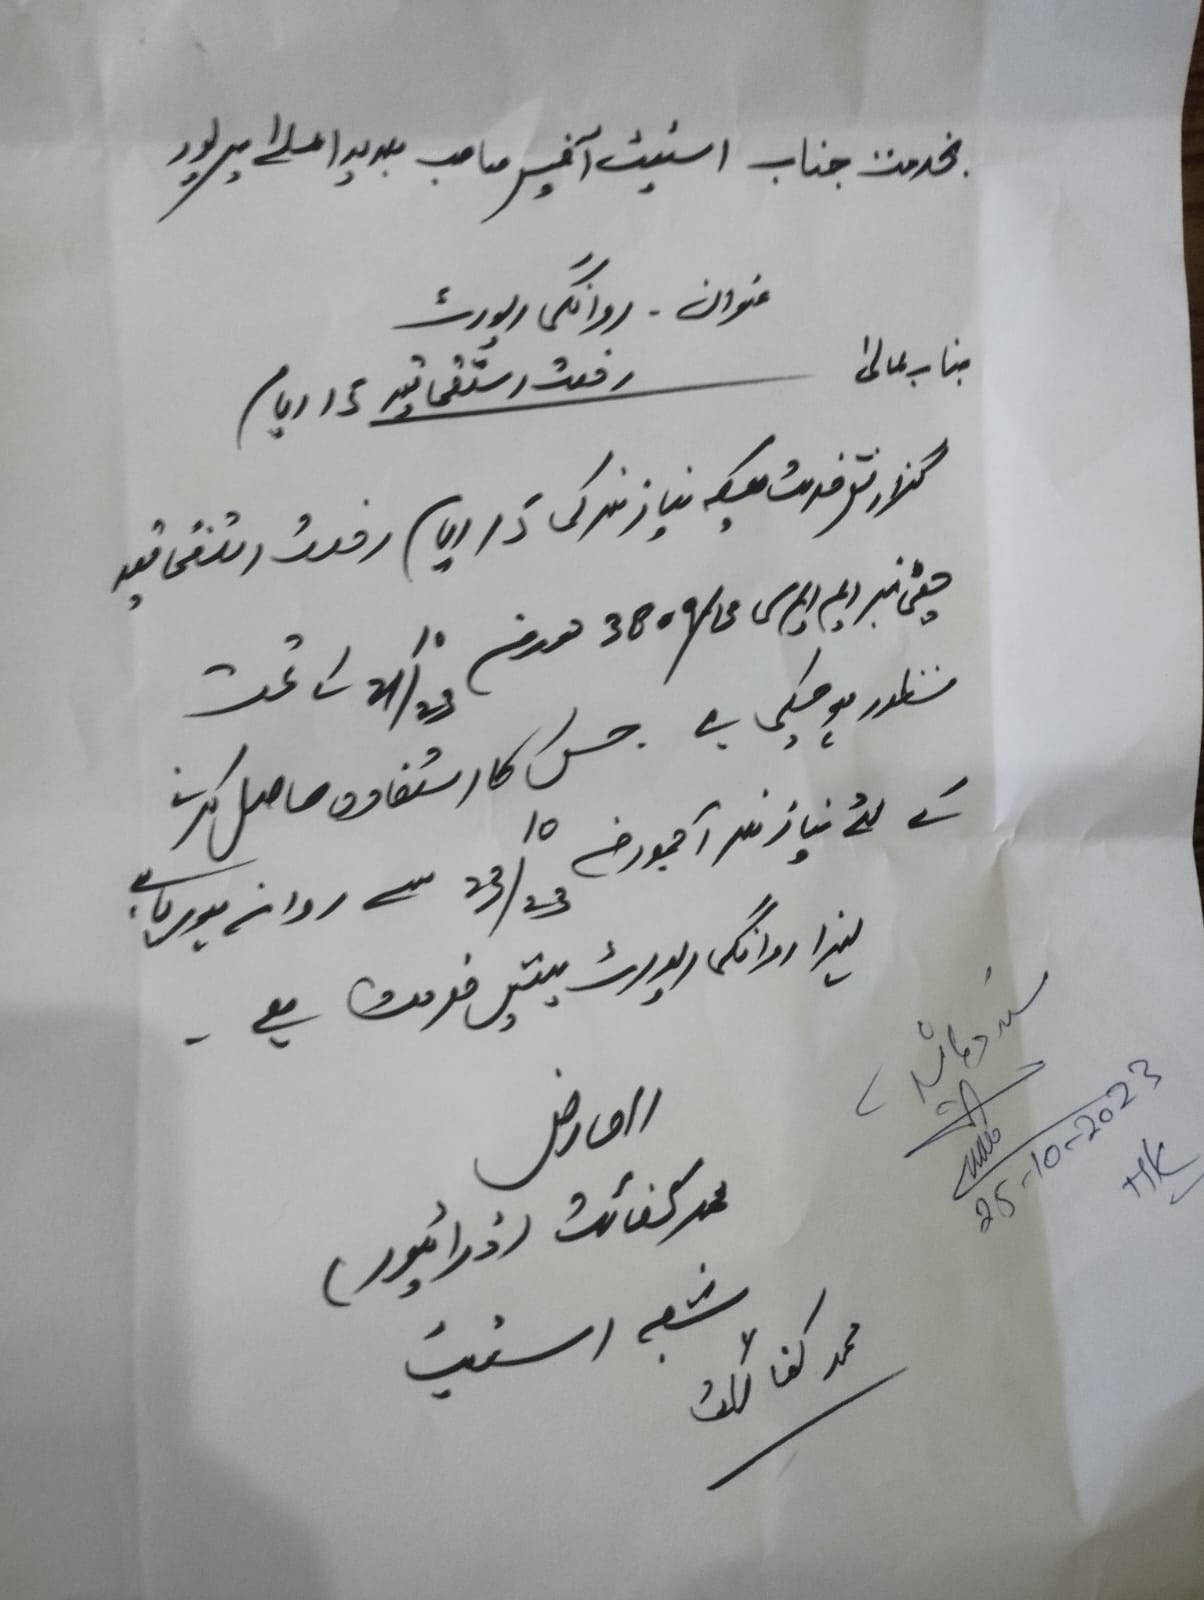 بخدمت جناب اسٹیٹ آفیسر صاحب بلدیہ اعلیٰ میرپور
عنوان - روانگی رپورٹ
جناب عالی
رخصت استحقاقیہ 15 ایام
گزارش خدمت ہیکہ نیازمند کی 15 ایام رخصت استحقاقیہ
چٹھی نمبر ایم ایم سی 3809 مورخہ 21/10/23 کے تحت
منظور ہو چکی ہے۔ جس کا استفادہ حاصل کرنے
کے لئے نیازمند آجمورخہ 23/10/23 سے روانہ ہو رہا ہے
لہذا روانگی رپورٹ پیش خدمت ہے -
العارض
محمد کفائت (ڈرائیور)
شعبہ اسٹیٹ
محمد کفائت
25-10-2023
HK